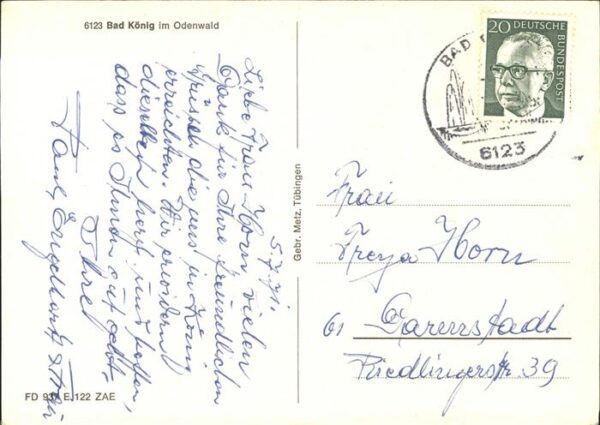 6123 Bad König im Odenwald
5.7.71.
Liebe Frau Horn vielen
Dank für Ihre freundlichen
die uns in König
erreichten. Wir erwidern
dieselben herzl. und hoffen,
dass es Ihnen gut geht.
Ihre
Gebr. Metz, Tübingen
FD 93 E.122 ZAE
20 DEUTSCHE
BUNDESPOST
BAD
6123
Frau
Freya Horn
61 Darmstadt
Riedlingerstr. 39